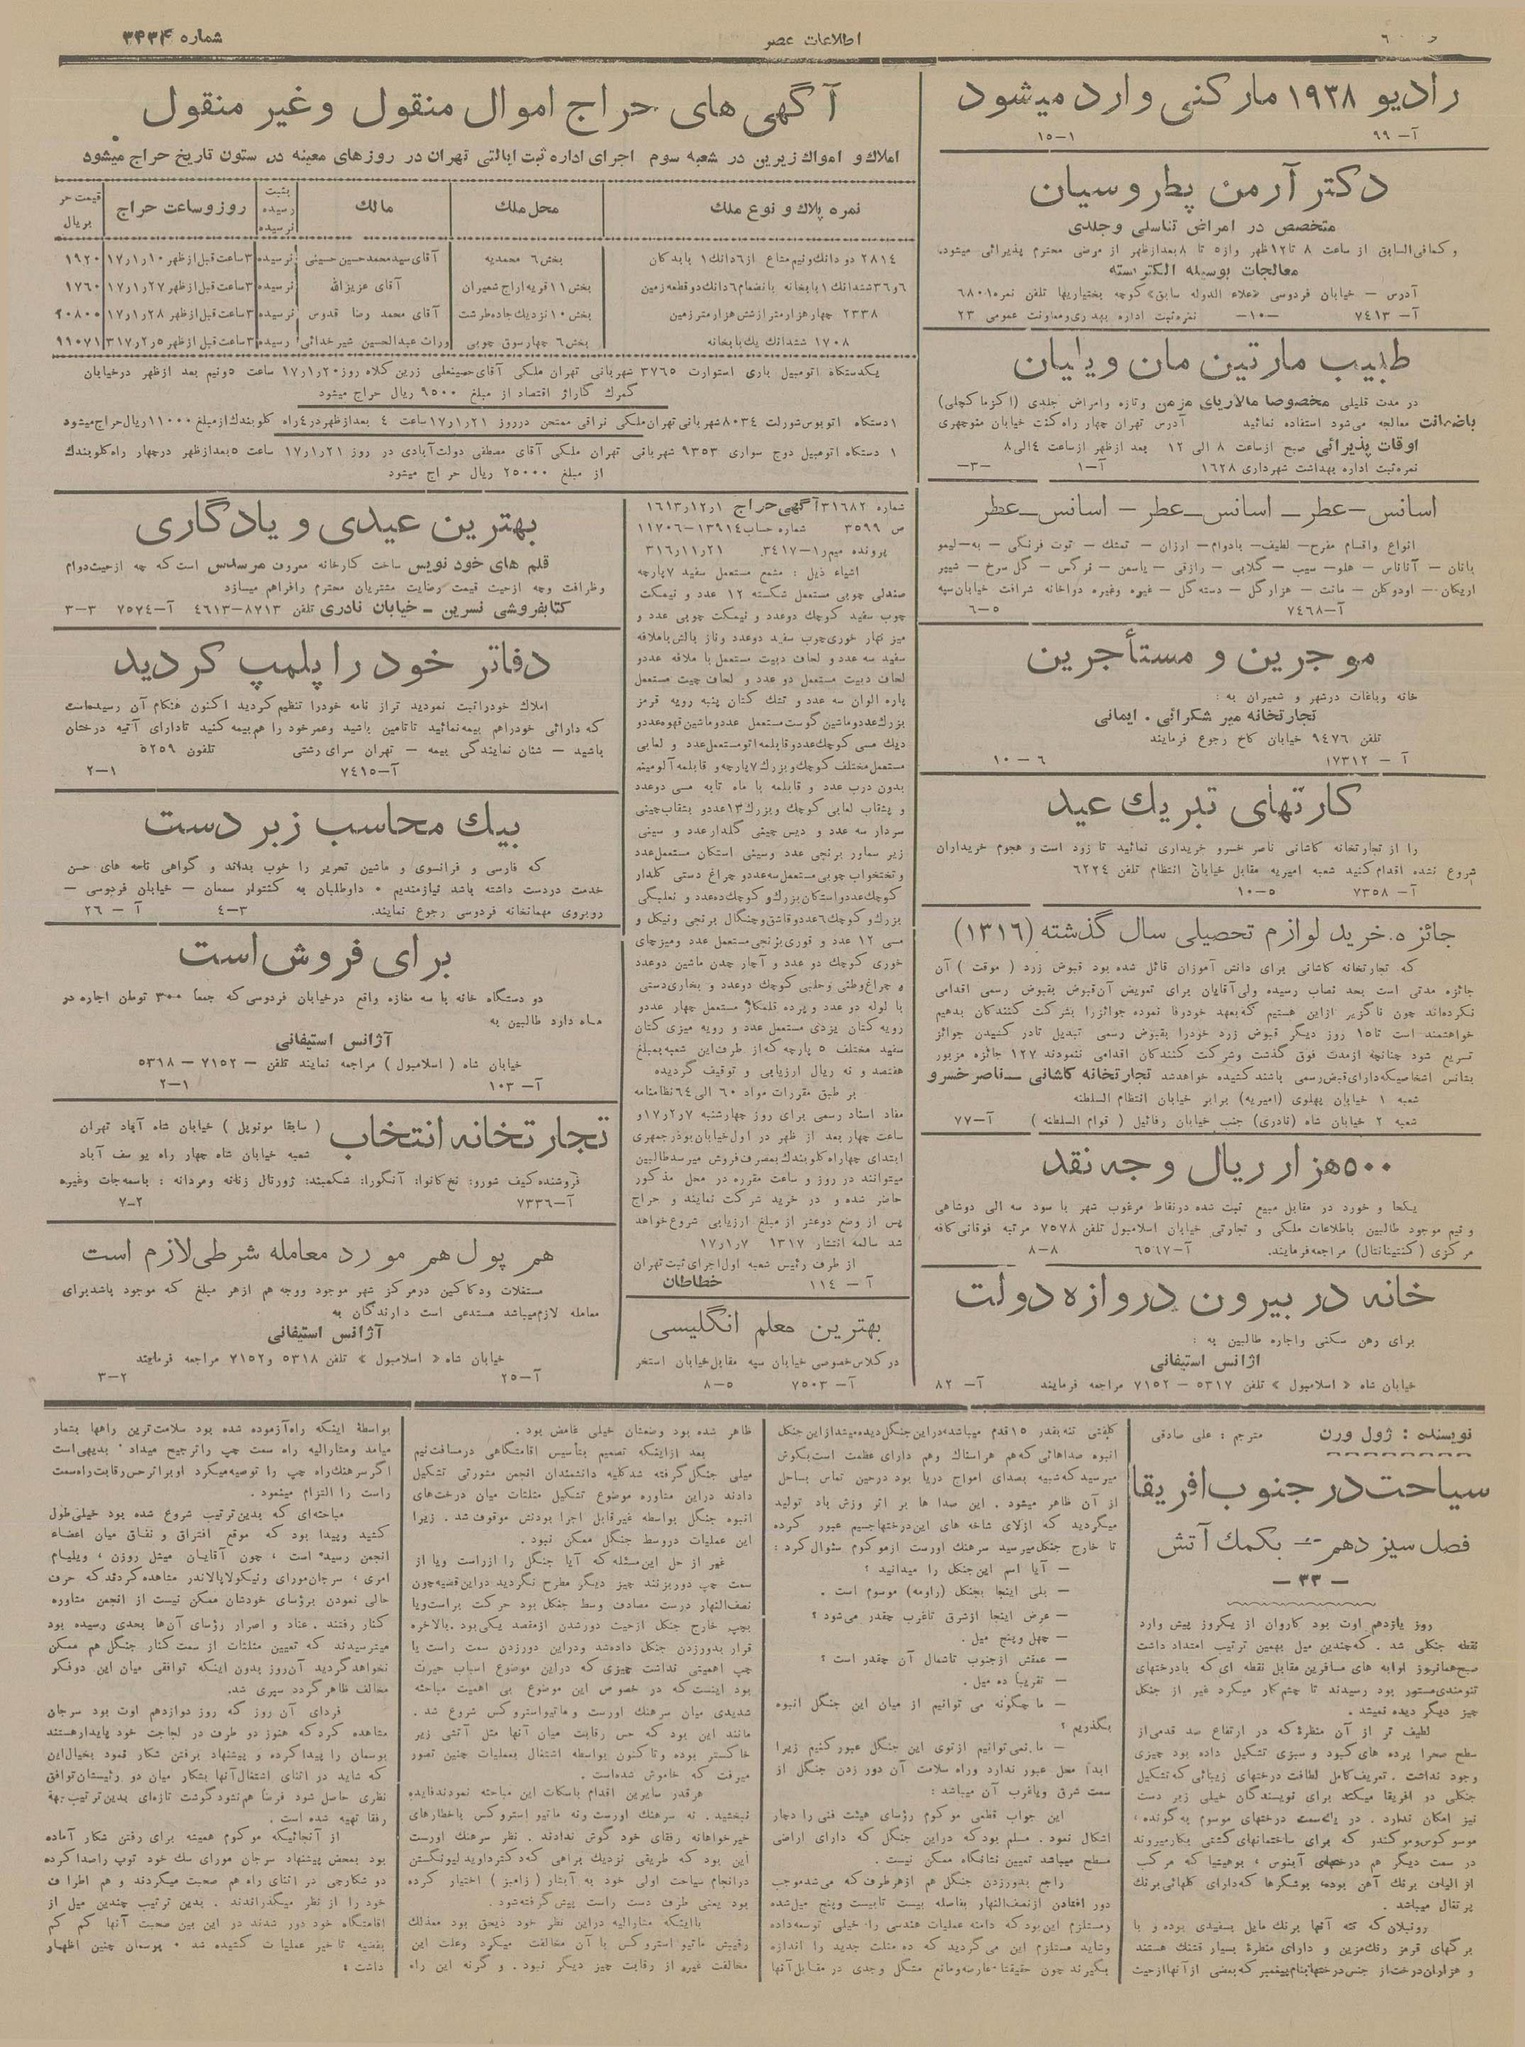 شماره ۳۴۳۴
اطلاعات عصر
رادیو ۱۹۳۸ مارکنی وارد میشود
آ- ۹۹ ۱-۱۵
دکتر آرمن پطروسیان
متخصص در امراض تناسلی وجلدی
وکمافی‌السابق از ساعت ۸ تا ۱۲ظهر واز ۵ تا ۸ بعدازظهر از مرضی محترم پذیرائی میشود.
معالجات بوسیله الکتریسته
آدرس – خیابان فردوسی «علاء الدوله سابق» کوچه بختیاریها تلفن نمره ۶۸۰۱
آ- ۷۴۱۳ –۱۰– نمره ثبت اداره بهداری ومعاونت عمومی ۲۳
طبیب مارتین مان ویایان
در مدت قلیلی مخصوصا مالاریای مزمن وتازه وامراض جلدی (اکزما کچلی)
باضمانت معالجه می‌شود استفاده نمائید آدرس تهران چهار راه کنت خیابان منوچهری
اوقات پذیرائی صبح از ساعت ۸ الی ۱۲ بعد ازظهر ازساعت ۴ الی ۸
نمره ثبت اداره بهداشت شهرداری ۱۶۲۸ آ-۱ –۳–
اسانس–عطر – اسانس–عطر – اسانس–عطر
انواع واقسام مفرح– لطیف– بادوام– ارزان – تمشك – توت فرنگی – به–لیمو
آ-۷۴۶۸ ۵-۶
موجرین و مستأجرین
خانه وباغات درشهر و شمیران به :
تجارتخانه میر شکرائی . ایمانی
تلفن ۹۴۷۶ خیابان کاخ رجوع فرمایند
آ - ۱۷۳۱۲ ۶ - ۱۰
کارتهای تبریك عید
را از تجارتخانه کاشانی ناصر خسرو خریداری نمائید تا زود است و هجوم خریداران
شروع نشده اقدام کنید شعبه امیریه مقابل خیابان انتظام تلفن ۶۲۲۴
آ- ۷۳۵۸ ۵-۱۰
جائزه خرید لوازم تحصیلی سال گذشته (۱۳۱۶)
که تجارتخانه کاشانی برای دانش آموزان قائل شده بود قبوض زرد ( موقت ) آن
جائزه مدتی است بحد نصاب رسیده ولی آقایان برای تعویض آن قبوض بقبوض رسمی اقدامی
نکرده‌اند چون ناگزیر ازاین هستیم که بعهد خودوفا نموده جوائز را بشرکت کنندگان بدهیم
خواهشمند است تا ۱۵ روز دیگر قبوض زرد خودرا بقبوض رسمی تبدیل تادر کشیدن جوائز
تسریع شود چنانچه ازمدت فوق گذشت وشرکت کنندکان اقدامی ننمودند ۱۲۷ جائزه مزبور
بشانس اشخاصیکه دارای قبض رسمی باشند کشیده خواهدشد تجارتخانه کاشانی – ناصر خسرو
شعبه ۱ خیابان پهلوی (امیریه) برابر خیابان انتظام السلطنه
شعبه ۲ خیابان شاه (نادری) جنب خیابان رفائیل ( قوام السلطنه ) آ-۷۷
۵۰۰ هزار ریال وجه نقد
یکجا و خورد در مقابل مبیع ثبت شده درنقاط مرغوب شهر با سود سه الی دوشاهی
و نیم موجود طالبین باطلاعات ملکی و تجارتی خیابان اسلامبول تلفن ۷۵۷۸ مرتبه فوقانی کافه
مرکزی (کنتینانتال) مراجعه فرمایند. آ- ۶۵۶۷ ۸-۸
خانه در بیرون دروازه دولت
برای رهن سکنی واجاره طالبین به :
آژانس استیفانی
خیابان شاه « اسلامبول » تلفن ۵۳۱۷ – ۷۱۵۲ مراجعه فرمایند آ- ۸۲
آگهی های حراج اموال منقول وغیر منقول
املاك و اموال زیرین در شعبه سوم اجرای اداره ثبت ایالتی تهران در روزهای معینه در ستون تاریخ حراج میشود
نمره پلاك و نوع ملك محل ملك مالك بثبت رسیده نرسیده روز وساعت حراج قیمت حر بریال
۲۸۱۴ دو دانك ونیم مشاع از ۶ دانك ۱ باب دکان بخش ۶ محمدیه آقای سیدمحمدحسین حسینی نرسیده ۳ساعت قبل ازظهر ۱۷٫۱٫۱۰ ۱۹۲۰
۶ و ۳۶ ششدانك ۱ بابخانه بانضمام ۶ دانك دوقطعه زمین بخش ۱۱ قریه اراج شمیران آقای عزیزالله نرسیده ۳ساعت قبل ازظهر ۱۷٫۱٫۲۷ ۱۷۶۰
۲۳۳۸ چهار هزارمتر ازشش هزارمتر زمین بخش ۱۰ نزدیك جاده طرشت آقای محمد رضا قدوس نرسیده ۳ساعت قبل ازظهر ۱۷٫۱٫۲۸ ۲۰۸۰۰
۱۷۰۸ ششدانك یك بابخانه بخش ۶ چهارسوق چوبی وراث عبدالحسین شیرخدائی رسیده ۳ساعت قبل ازظهر ۳۱۷٫۲٫۵ ۹۱۰۷۱
یکدستگاه اتومبیل باری استوارت ۳۷۶۵ شهربانی تهران ملکی آقای حسینعلی زرین کلاه روز ۱۷٫۱٫۲۰ ساعت ۵ ونیم بعد ازظهر درخیابان
گمرك گاراژ اقتصاد از مبلغ ۹۵۰۰ ریال حراج میشود
۱ دستگاه اتوبوس شورلت ۸۰۳۴ شهربانی تهران ملکی نراقی ممتحن درروز ۱۷٫۱٫۲۱ ساعت ۴ بعدازظهر در ۴ راه کلوبندك از مبلغ ۱۱۰۰۰ ریال حراج میشود
۱ دستگاه اتومبیل دوج سواری ۹۳۵۳ شهربانی تهران ملکی آقای مصطفی دولت‌آبادی در روز ۱۷٫۱٫۲۱ ساعت ۵ بعدازظهر درچهار راه کلوبندك
از مبلغ ۲۵۰۰۰ ریال حراج میشود
شماره ۳۱۶۸۲ آگهی حراج ۱۶۱۳٫۱۲٫۱
ص ۳۵۹۹ شماره حساب ۱۳۹۱۴-۱۱۷۰۶
پرونده میم ر۱-۳۴۱۷ ۳۱۶٫۱۱٫۲۱
اشیاء ذیل : مشمع مستعمل سفید ۷ پارچه
صندلی چوبی مستعمل شکسته ۱۲ عدد و نیمکت
چوب سفید کوچك دوعدد و نیمکت چوبی عدد و
میز نهار خوری چوب سفید دوعدد وناز بالش باملافه
سفید سه عدد و لحاف دبیت مستعمل با ملافه عددو
لحاف دبیت مستعمل دو عدد و لحاف چیت مستعمل
پاره الوان سه عدد و تشك کتان پنبه رویه قرمز
بزرك عددو ماشین گوست مستعمل عددو ماشین قهوه عددو
مستعمل مختلف کوچك و بزرك ۷ پارچه و قابلمه آلومینم
بدون درب عدد و قابلمه با ماه تابه مسی دوعدد
و بشقاب لعابی کوچك وبزرك ۱۳ عددو بشقاب چینی
سردار سه عدد و دیس چینی گلدار عدد و سینی
زیر سماور برنجی عدد وسینی استکان مستعمل عدد
و تختخواب چوبی مستعمل سه عددو چراغ دستی کلدار
کوچك عدد و استکان بزرك و کوچك ده عدد و نعلبگی
بزرك و کوچك ۶ عدد و قاشق و چنگال برنجی ونیکل و
مسی ۱۲ عدد و قوری برنجی مستعمل عدد ومیز چای
خوری کوچك دو عدد و آچار چدن ماشین دوعدد
با لوله دو عدد و پرده قلمکار مستعمل چهار عددو
رویه کتان یزدی مستعمل عدد و رویه میزی کتان
سفید مختلف ۵ پارچه که از طرف این شعبه بمبلغ
هفتصد و نه ریال ارزیابی و توقیف گردیده
بر طبق مقررات مواد ۶۰ الی ۶۴ نظامنامه
مفاد اسناد رسمی برای روز چهارشنبه ۱۷٫۲٫۷ و
ساعت چهار بعد از ظهر در اول خیابان بوذرجمهری
ابتدای چهار راه کلوبندك بمصرف فروش میرسد طالبین
میتوانند در روز و ساعت مقرره در محل مذکور
حاضر شده و در خرید شرکت نمایند و حراج
پس از وضع دوعشر از مبلغ ارزیابی شروع خواهد
شد سالمه انتشار ۱۳۱۷ ۱۷٫۱٫۷
از طرف رئیس شعبه اول اجرای ثبت تهران
آ - ۱۱۴ خطاطان
بهترین معلم انگلیسی
در کلاس خصوصی خیابان سپه مقابل خیابان استخر
آ- ۷۵۰۳ ۵-۸
بهترین عیدی و یادگاری
قلم های خود نویس ساخت کارخانه معروف مرسدس است که چه ازحیث دوام
وظرافت وچه ازحیث قیمت رضایت مشتریان محترم رافراهم میسازد
کتابفروشی نسرین – خیابان نادری تلفن ۸۷۱۳-۴۶۱۳ آ-۷۵۷۴ ۳-۳
دفاتر خود را پلمپ کردید
املاك خودراثبت نمودید تراز نامه خودرا تنظیم کردید اکنون هنگام آن رسیده‌است
که دارائی خودراهم بیمه نمائید تاتامین باشید وعمرخود را هم بیمه کنید تادارای آتیه درخشان
باشید – نشان نمایندگی بیمه – تهران سرای رشتی تلفون ۵۲۵۹
آ-۷۴۱۵ ۱-۲
بیك محاسب زبر دست
که فارسی و فرانسوی و ماشین تحریر را خوب بداند و گواهی نامه های حسن
خدمت دردست داشته باشد نیازمندیم . داوطلبان به کنتوار سمعان – خیابان فردوسی –
روبروی مهمانخانه فردوسی رجوع نمایند. ۳-۴ آ - ۲۶
برای فروش است
دو دستگاه خانه با سه مغازه واقع درخیابان فردوسی که جمعا ۳۰۰ تومان اجاره در
ماه دارد طالبین به
آژانس استیفانی
خیابان شاه ( اسلامبول ) مراجعه نمایند تلفن – ۷۱۵۲ – ۵۳۱۸
آ- ۱۰۳ ۱-۲
تجارتخانه انتخاب
( سابقا مونوپل ) خیابان شاه آباد تهران
شعبه خیابان شاه چهار راه یوسف آباد
فروشنده کیف شورو: نخ کانوا: آنگورا: شکمبند: ژورنال زنانه ومردانه : باسمه جات وغیره
آ-۷۳۳۶ ۲-۷
هم پول هم مورد معامله شرطی لازم است
مستغلات ودکاکین درمرکز شهر موجود ووجه هم ازهر مبلغ که موجود باشد برای
معامله لازم میباشد مستدعی است دارندگان به
آژانس استیفانی
خیابان شاه « اسلامبول » تلفن ۵۳۱۸ و ۷۱۵۲ مراجعه فرمایند
آ-۲۵ ۲-۳
نویسنده : ژول ورن مترجم : علی صادقی
سیاحت در جنوب افریقا
فصل سیزدهم – بکمك آتش
– ۳۳ –
روز یازدهم اوت بود کاروان از یکروز پیش وارد
نقطه جنکلی شد . که چندین میل بهمین ترتیب امتداد داشت
صبح همانروز ارابه های مسافرین مقابل نقطه ای که بادرختهای
تنومندی مستور بود رسیدند تا چشم کار میکرد غیر از جنکل
چیز دیگر دیده نمیشد .
لطیف تر از آن منظرهٔ که در ارتفاع صد قدمی از
سطح صحرا پرده های کبود و سبزی تشکیل داده بود چیزی
وجود نداشت . تعریف کامل لطافت درختهای زیبائی که تشکیل
جنکلی در افریقا میکند برای نویسندگان خیلی زبر دست
نیز امکان ندارد . در یکسمت درختهای موسوم به گونده ،
موسوکوس وموکندو که برای ساختمانهای کشتی بکار میروند
در سمت دیگر هم درختهای آبنوس ، بوهینیا که مرکب
از الیاف برنك آهن بوده، بوشگرها که دارای کلهائی برنك
پرتقال میباشد .
رونبلان که تنه آنها برنك مایل بسفیدی بوده و با
برگهای قرمز رنك مزین و دارای منظرهٔ بسیار قشنك هستند
و هزاران درخت از جنس درختها بنام پیغمبر که بعضی از آنها ازحیث
کلفتی تنه بقدر ۱۵ قدم میباشد دراین جنگل دیده میشد از این جنکل
انبوه صداهائی که هم هراسناك وهم دارای عظمت است بکوش
میرسید که شبیه بصدای امواج دریا بود درحین تماس بساحل
از آن ظاهر میشود . این صدا ها بر اثر وزش باد تولید
میگردید که ازلای شاخه های این درختها جسیم عبور کرده
تا خارج جنکل میرسید سرهنك اورست ازموکوم سئوال کرد :
– آیا اسم این جنکل را میدانید ؟
– بلی اینجا بجنکل (راومه) موسوم است .
– عرض اینجا ازشرق تاغرب چقدر می‌شود ؟
– چهل وپنج میل .
– عمقش ازجنوب تاشمال آن چقدر است ؟
– تقریبا ده میل .
– ما چگونه می توانیم از میان این جنگل انبوه
بگذریم ؟
– ما نمی‌توانیم ازتوی این جنگل عبور کنیم زیرا
ابدا محل عبور ندارد وراه سلامت آن دور زدن جنگل از
سمت شرق ویاغرب آن میباشد :
این جواب قطعی موکوم رؤسای هیئت فنی را دچار
اشکال نمود . مسلم بود که دراین جنگل که دارای اراضی
مسطح میباشد تعیین نشانگاه ممکن نیست .
راجع بدورزدن جنگل هم ازهرطرف که می‌شد موجب
دور افتادن ازنصف‌النهار بفاصله بیست تابیست وپنج میل شده
ومستلزم این بود که دامنه عملیات هندسی را خیلی توسعه داده
وشاید مستلزم این می‌گردید که ده مثلث جدید را اندازه
بگیرند چون حقیقتا عارضه ومانع مشکل وجدی در مقابل آنها
ظاهر شده بود وضعشان خیلی غامض بود .
بعد ازاینکه تصمیم بتأسیس اقامتگاهی درمسافت نیم
میلی جنگل گرفته شد کلیه دانشمندان انجمن مشورتی تشکیل
دادند دراین مشاوره موضوع تشکیل مثلثات میان درخت‌های
انبوه جنگل بواسطه غیرقابل اجرا بودنش موقوف شد . زیرا
این عملیات دروسط جنگل ممکن نبود .
غیر از حل این مسئله که آیا جنگل را از راست ویا از
سمت چپ دور بزنند چیز دیگر مطرح نگردید دراین قضیه چون
نصف‌النهار درست مصادف وسط جنگل بود حرکت براست ویا
بچپ خارج جنگل ازحیث دورشدن ازمقصد یکی بود. بالاخره
قرار بدورزدن جنکل داده‌شد ودراین دورزدن سمت راست یا
چپ اهمیتی نداشت چیزی که دراین موضوع اسباب حیرت
بود اینست که در خصوص این موضوع بی اهمیت مباحثه
شدیدی میان سرهنك اورست و ماتیواستروکس شروع شد .
مانند این بود که حس رقابت میان آنها مثل آتشی زیر
خاکستر بوده وتاکنون بواسطه اشتغال بعملیات چنین تصور
میرفت که خاموش شده‌است .
هرقدر سایرین اقدام باسکات این مباحثه نمودند فایده
نبخشید . نه سرهنك اورست ونه ماتیو استروکس باخطارهای
خیرخواهانه رفقای خود گوش ندادند . نظر سرهنك اورست
این بود که طریقی نزدیك براهی که دکتر داوید لیونگستن
درانجام سیاحت اولی خود به آبشار (زامبز) اختیار کرده
بود یعنی طرف دست راست پیش گرفته‌شود .
بااینکه مشارالیه دراین نظر خود ذیحق بود معذلك
رقیبش ماتیو استروکس با آن مخالفت میکرد وعلت این
مخالفت غیره از رقابت چیز دیگر نبود . و گرنه این راه
بواسطهٔ اینکه راه آزموده شده بود سلامت‌ترین راهها بشمار
میامد ومشارالیه راه سمت چپ راترجیح میداد . بدیهی است
اگر سرهنك راه چپ را توصیه میکرد او براثر حس رقابت راه سمت
راست را التزام مینمود .
مباحثه‌ای که بدین‌ترتیب شروع شده بود خیلی طول
کشید وپیدا بود که موقع افتراق و نفاق میان اعضاء
انجمن رسیده است ، چون آقایان میشل روزن ، ویلیام
امری ، سرجان مورای ونیکولاپالاندر مشاهده کردند که حرف
حالی نمودن برؤسای خودشان ممکن نیست از انجمن مشاوره
کنار رفتند . عناد و اصرار رؤسای آن‌ها بحدی رسیده بود
میترسیدند که تعیین مثلثات از سمت کنار جنگل هم ممکن
نخواهدگردید آن‌روز بدون اینکه توافقی میان این دوفکر
مخالف ظاهر گردد سپری شد.
فردای آن روز که روز دوازدهم اوت بود سرجان
مشاهده کرد که هنوز دو طرف در لجاجت خود پایدار هستند
بوسمان را پیدا کرده و پیشنهاد برفتن شکار نمود بخیال این
که شاید در اثنای اشتغال آنها بشکار میان دو رئیسشان توافق
نظری حاصل شود فرضا هم نشود گوشت تازه‌ای بدین ترتیب بهة
رفقا تهیه شده است .
از آنجائیکه موکوم همیشه برای رفتن شکار آماده
بود بمحض پیشنهاد سرجان مورای سك خود توپ راصدا کرده
دو شکارچی در اثنای راه هم صحبت میکردند و هم اطراف
خود را از نظر میگذراندند . بدین ترتیب چندین میل از
اقامتگاه خود دور شدند در این بین صحبت آنها کم کم
بقضیه تاخیر عملیات کشیده شد . بوسمان چنین اظهار
داشت :